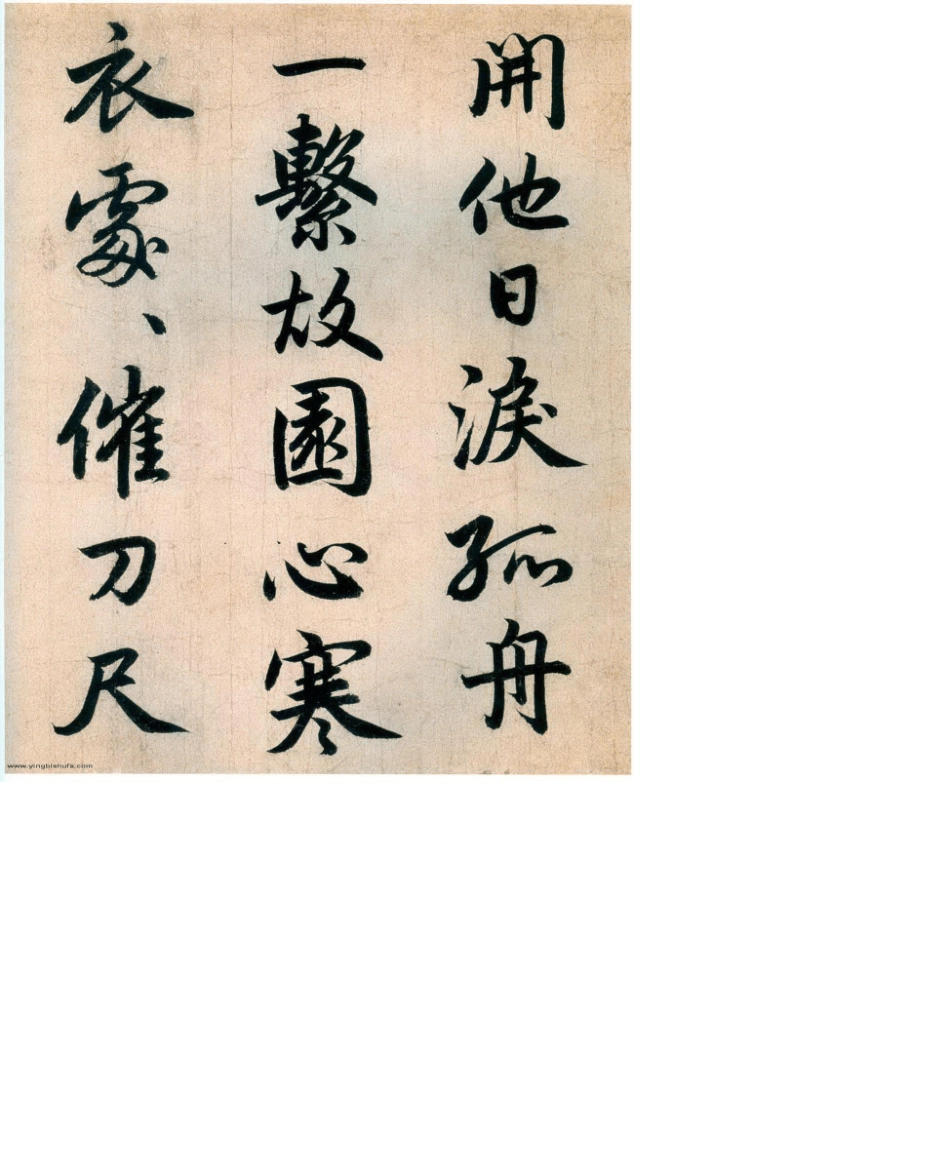 開他日淚孤舟
一繫故園心寒
衣處、催刀尺
www.yingbishufa.com